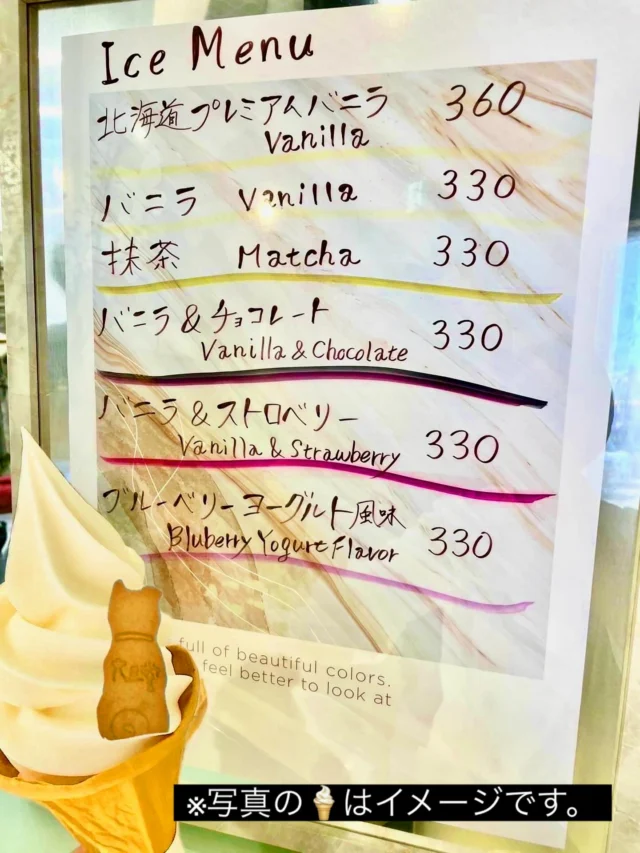 Ice Menu
北海道プレミアムバニラ 360
Vanilla
バニラ Vanilla 330
抹茶 Matcha 330
バニラ&チョコレート
Vanilla & Chocolate 330
バニラ&ストロベリー
Vanilla & Strawberry 330
ブルーベリーヨーグルト風味
Bluberry Yogurt Flavor 330
full of beautiful colors.
feel better to look at
※写真の🍦はイメージです。